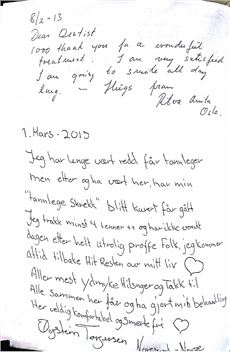 8/2-13
Dear Dentist
1000 thank you for a wonderful
treatment. I am very satisfied
I am going to smile all day
long. – Hugs from
Anita
Oslo.
1. Mars - 2013
Jeg har lenge vært redd får tannleger
men etter og ha vært her, har min
"tannlege Skrekk" blitt kvert får gått
Jeg trakk minst 4 tenner ++ og har ikke vondt
dagen etter helt utrolig proffe Folk, jeg kommer
altid tilbake Hit Resten av mitt liv ♡
Aller mest ydmyke Hilsnger og Takk til
Alle sammen her får og ha gjort min behandling
Her veldig komfortabel og smerte fri ♡
Øystein Torgersen